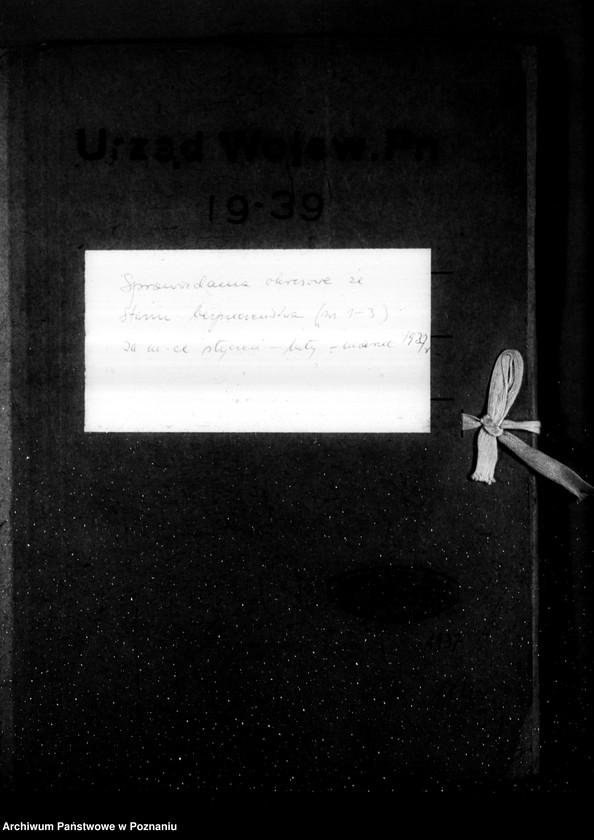 Urząd Wojew. Pn
19-39
Sprawozdania okresowe ze
stanu bezpieczeństwa (nr 1-3)
za m-ce styczeń - luty - marzec
Archiwum Państwowe w Poznaniu